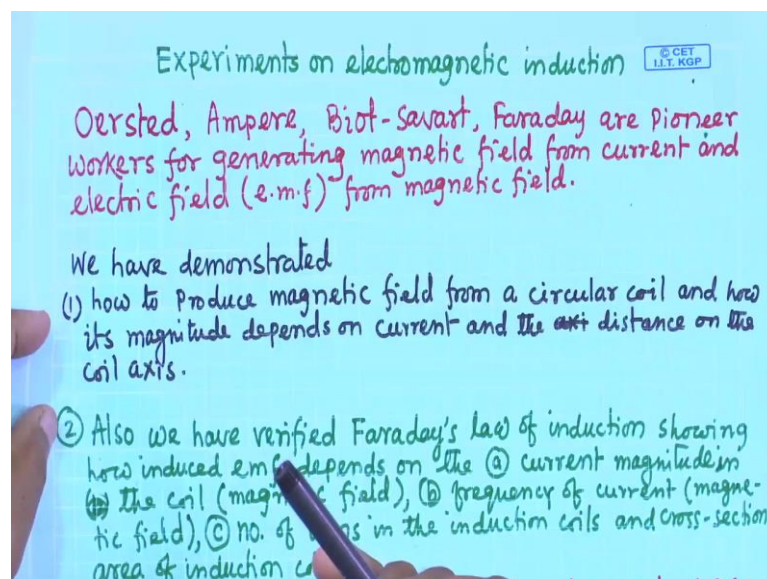 Experiments on electromagnetic induction
© CET
I.I.T. KGP
Oersted, Ampere, Biot-Savart, Faraday are Pioneer
workers for generating magnetic field from current and
electric field (e.m.f) from magnetic field.
We have demonstrated
(1) how to produce magnetic field from a circular coil and how
its magnitude depends on current and the distance on the
coil axis.
② Also we have verified Faraday's law of induction showing
how induced emf depends on the ⓐ current magnitude in
the coil (mag c field), ⓑ frequency of current (magne-
tic field), ⓒ no. of ns in the induction coils and cross-section
area of induction